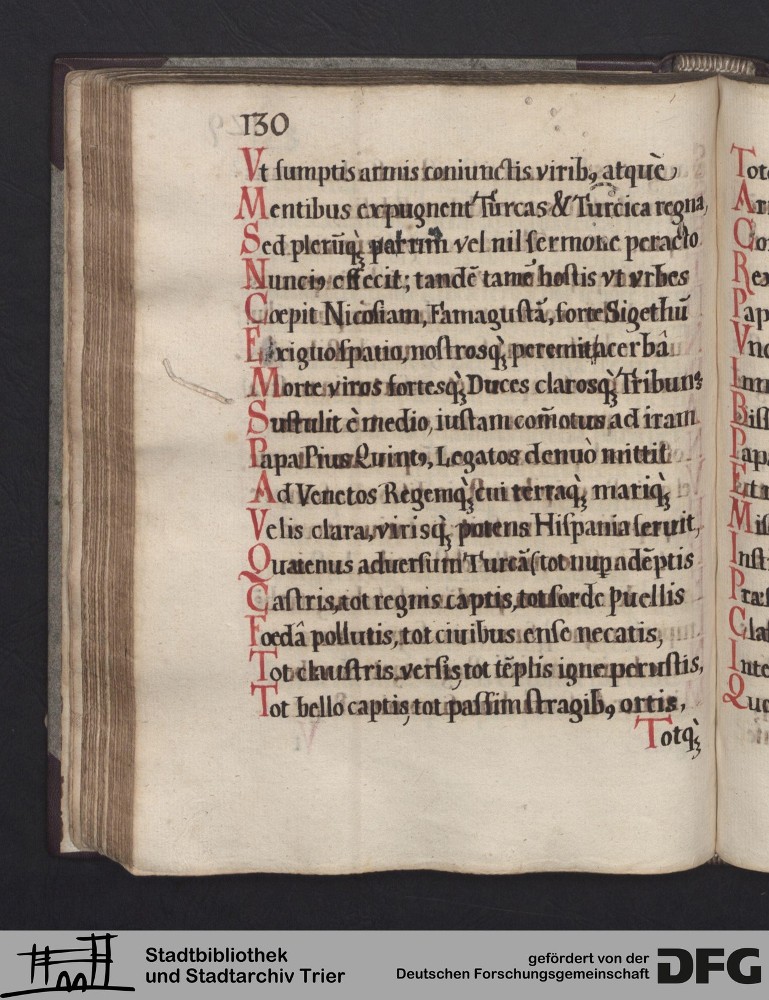 130
Vt sumptis armis coniunctis virib9 atquè
Mentibus expugnent Turcas & Turcica regna,
Sed plerũq; parum vel nil sermone peracto
Nunci9 effecit; tandẽ tamẽ hostis vt vrbes
Cœpit Nicosiam, Famagustã, forte Sigethũ
Exiguo spatio, nostrosq; peremit acerbâ
Morte viros fortesq; Duces clarosq; Tribun9
Sustulit è medio, iustam com̃otus ad iram
Papa Pius Quint9, Legatos denuò mittit
Ad Venetos Regemq; cui terraq; mariq;
Velis clara, virisq; potens Hispania seruit,
Quatenus aduersum Turcã (tot nup adẽptis
Castris, tot regnis captis, tot sorde puellis
Foedâ pollutis, tot ciuibus ense necatis,
Tot claustris versis, tot tẽplis igne perustis,
Tot bello captis, tot passim stragib9 ortis,
Totq;
Tot
Stadtbibliothek
und Stadtarchiv Trier
gefördert von der
Deutschen Forschungsgemeinschaft
DFG